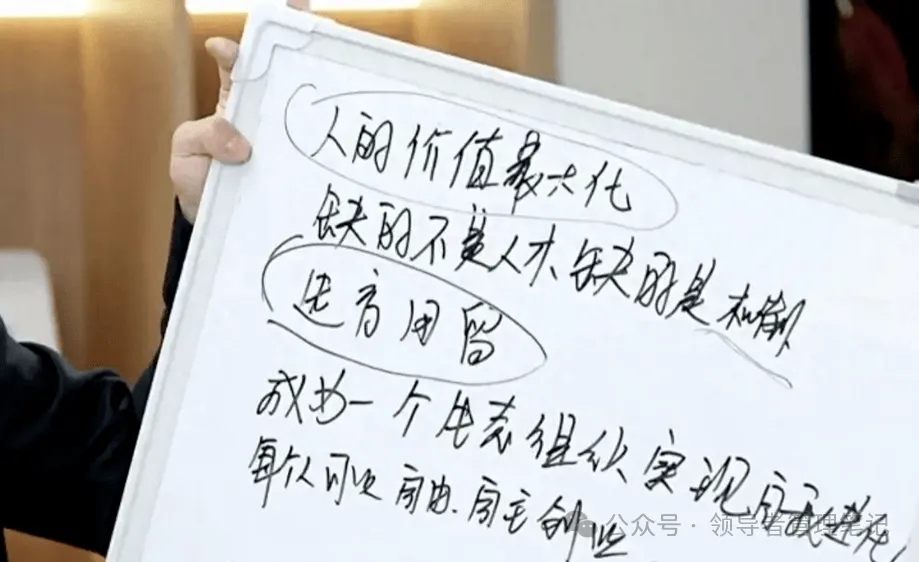 人的价值最大化
缺的不是人才、缺的是机制
选育用留
成为一个生态组织实现自我进化
每个人可以自由、自主创业
公众号·领导者管理笔记